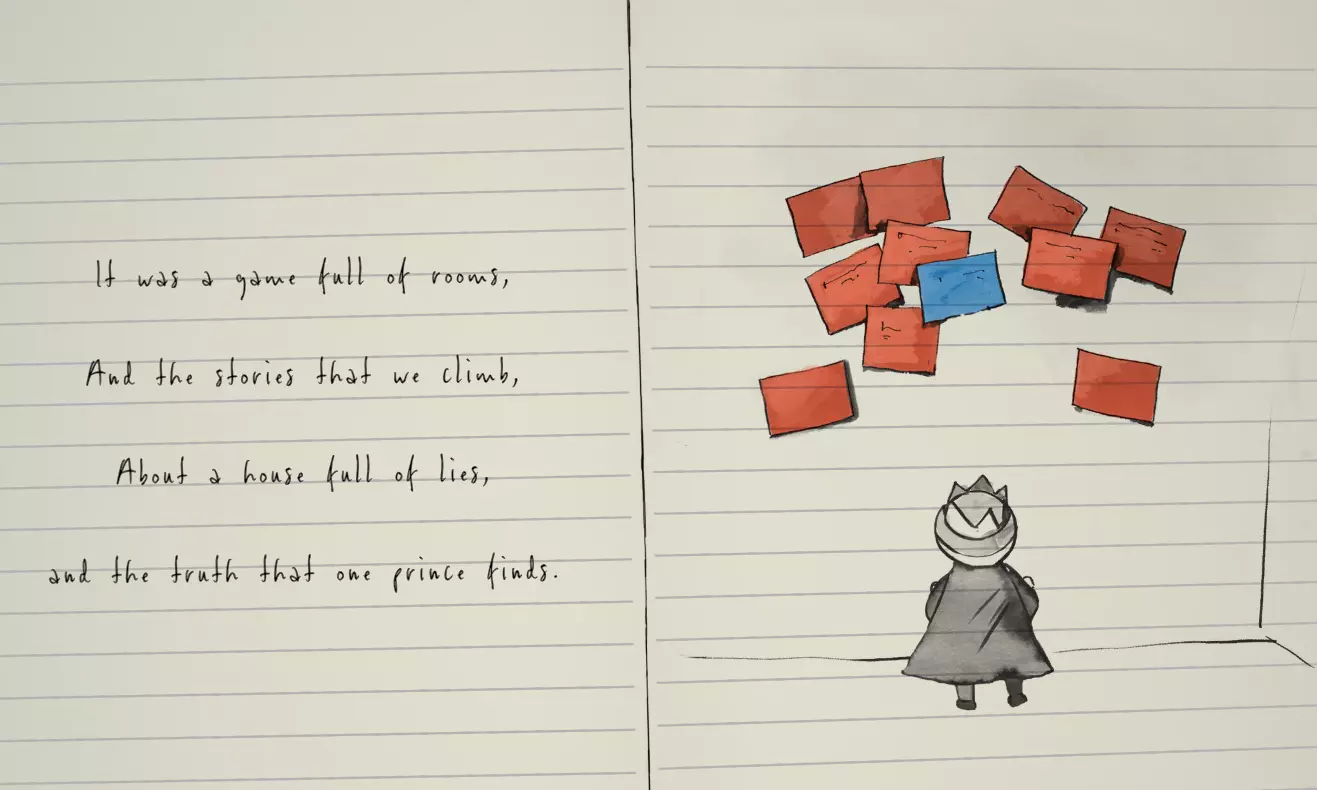 It was a game full of rooms,
And the stories that we climb,
About a house full of lies,
and the truth that one prince finds.